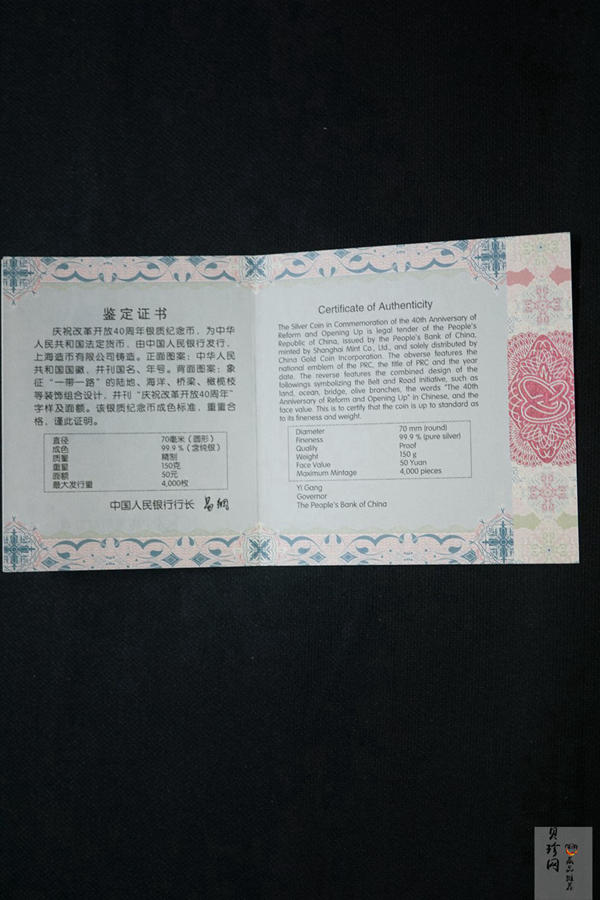 鉴定证书
庆祝改革开放40周年银质纪念币，为中华
人民共和国法定货币，由中国人民银行发行，
上海造币有限公司铸造。正面图案：中华人民
共和国国徽，并刊国名、年号。背面图案：象
征“一带一路”的陆地、海洋、桥梁、橄榄枝
等装饰组合设计，并刊“庆祝改革开放40周年”
字样及面额。该银质纪念币成色标准，重量合
格，谨此证明。
直径 70毫米（圆形）
成色 99.9％（含纯银）
质量 精制
重量 150克
面额 50元
最大发行量 4,000枚
中国人民银行行长 易纲
Certificate of Authenticity
The Silver Coin in Commemoration of the 40th Anniversary of
Reform and Opening Up is legal tender of the People's
Republic of China, issued by the People's Bank of China,
minted by Shanghai Mint Co., Ltd., and solely distributed by
China Gold Coin Incorporation. The obverse features the
national emblem of the PRC, the title of PRC and the year
date. The reverse features the combined design of the
followings symbolizing the Belt and Road Initiative, such as
land, ocean, bridge, olive branches, the words "The 40th
Anniversary of Reform and Opening Up" in Chinese, and the
face value. This is to certify that the coin is up to standard as
to its fineness and weight.
Diameter 70 mm (round)
Fineness 99.9 % (pure silver)
Quality Proof
Weight 150 g
Face Value 50 Yuan
Maximum Mintage 4,000 pieces
Yi Gang
Governor
The People's Bank of China
贝珍网
藏品推荐